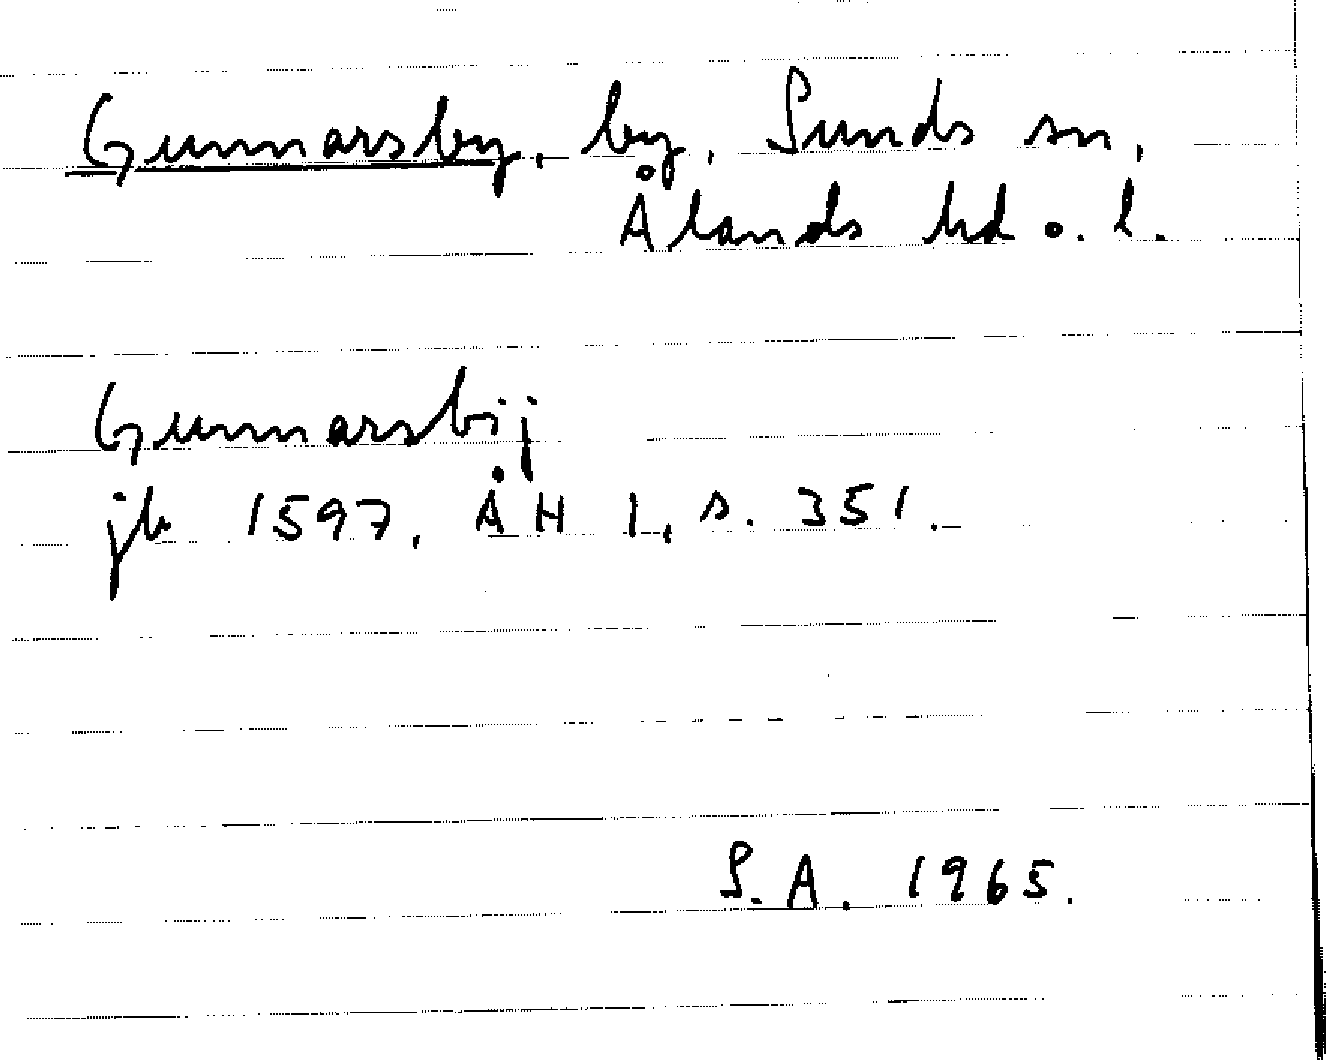 Gunnarsby, by, Sunds sn,
Ålands hd o. l.
Gunnarsbij
jb 1597, ÅH I, s. 351.
S.A. 1965.